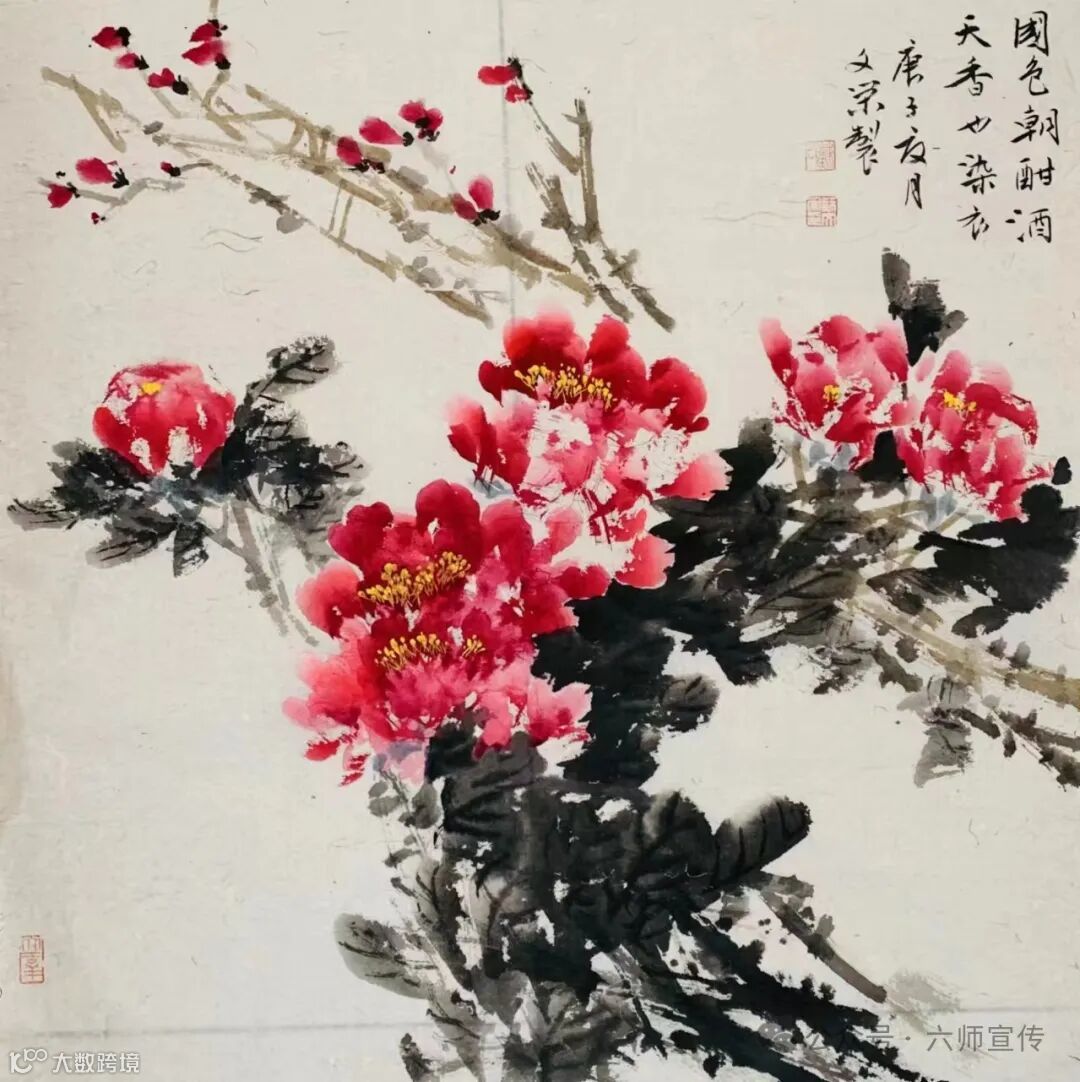 國色朝酣酒
天香也染衣
庚子夏月
文荣製
公众号 · 六师宣传
大数跨境